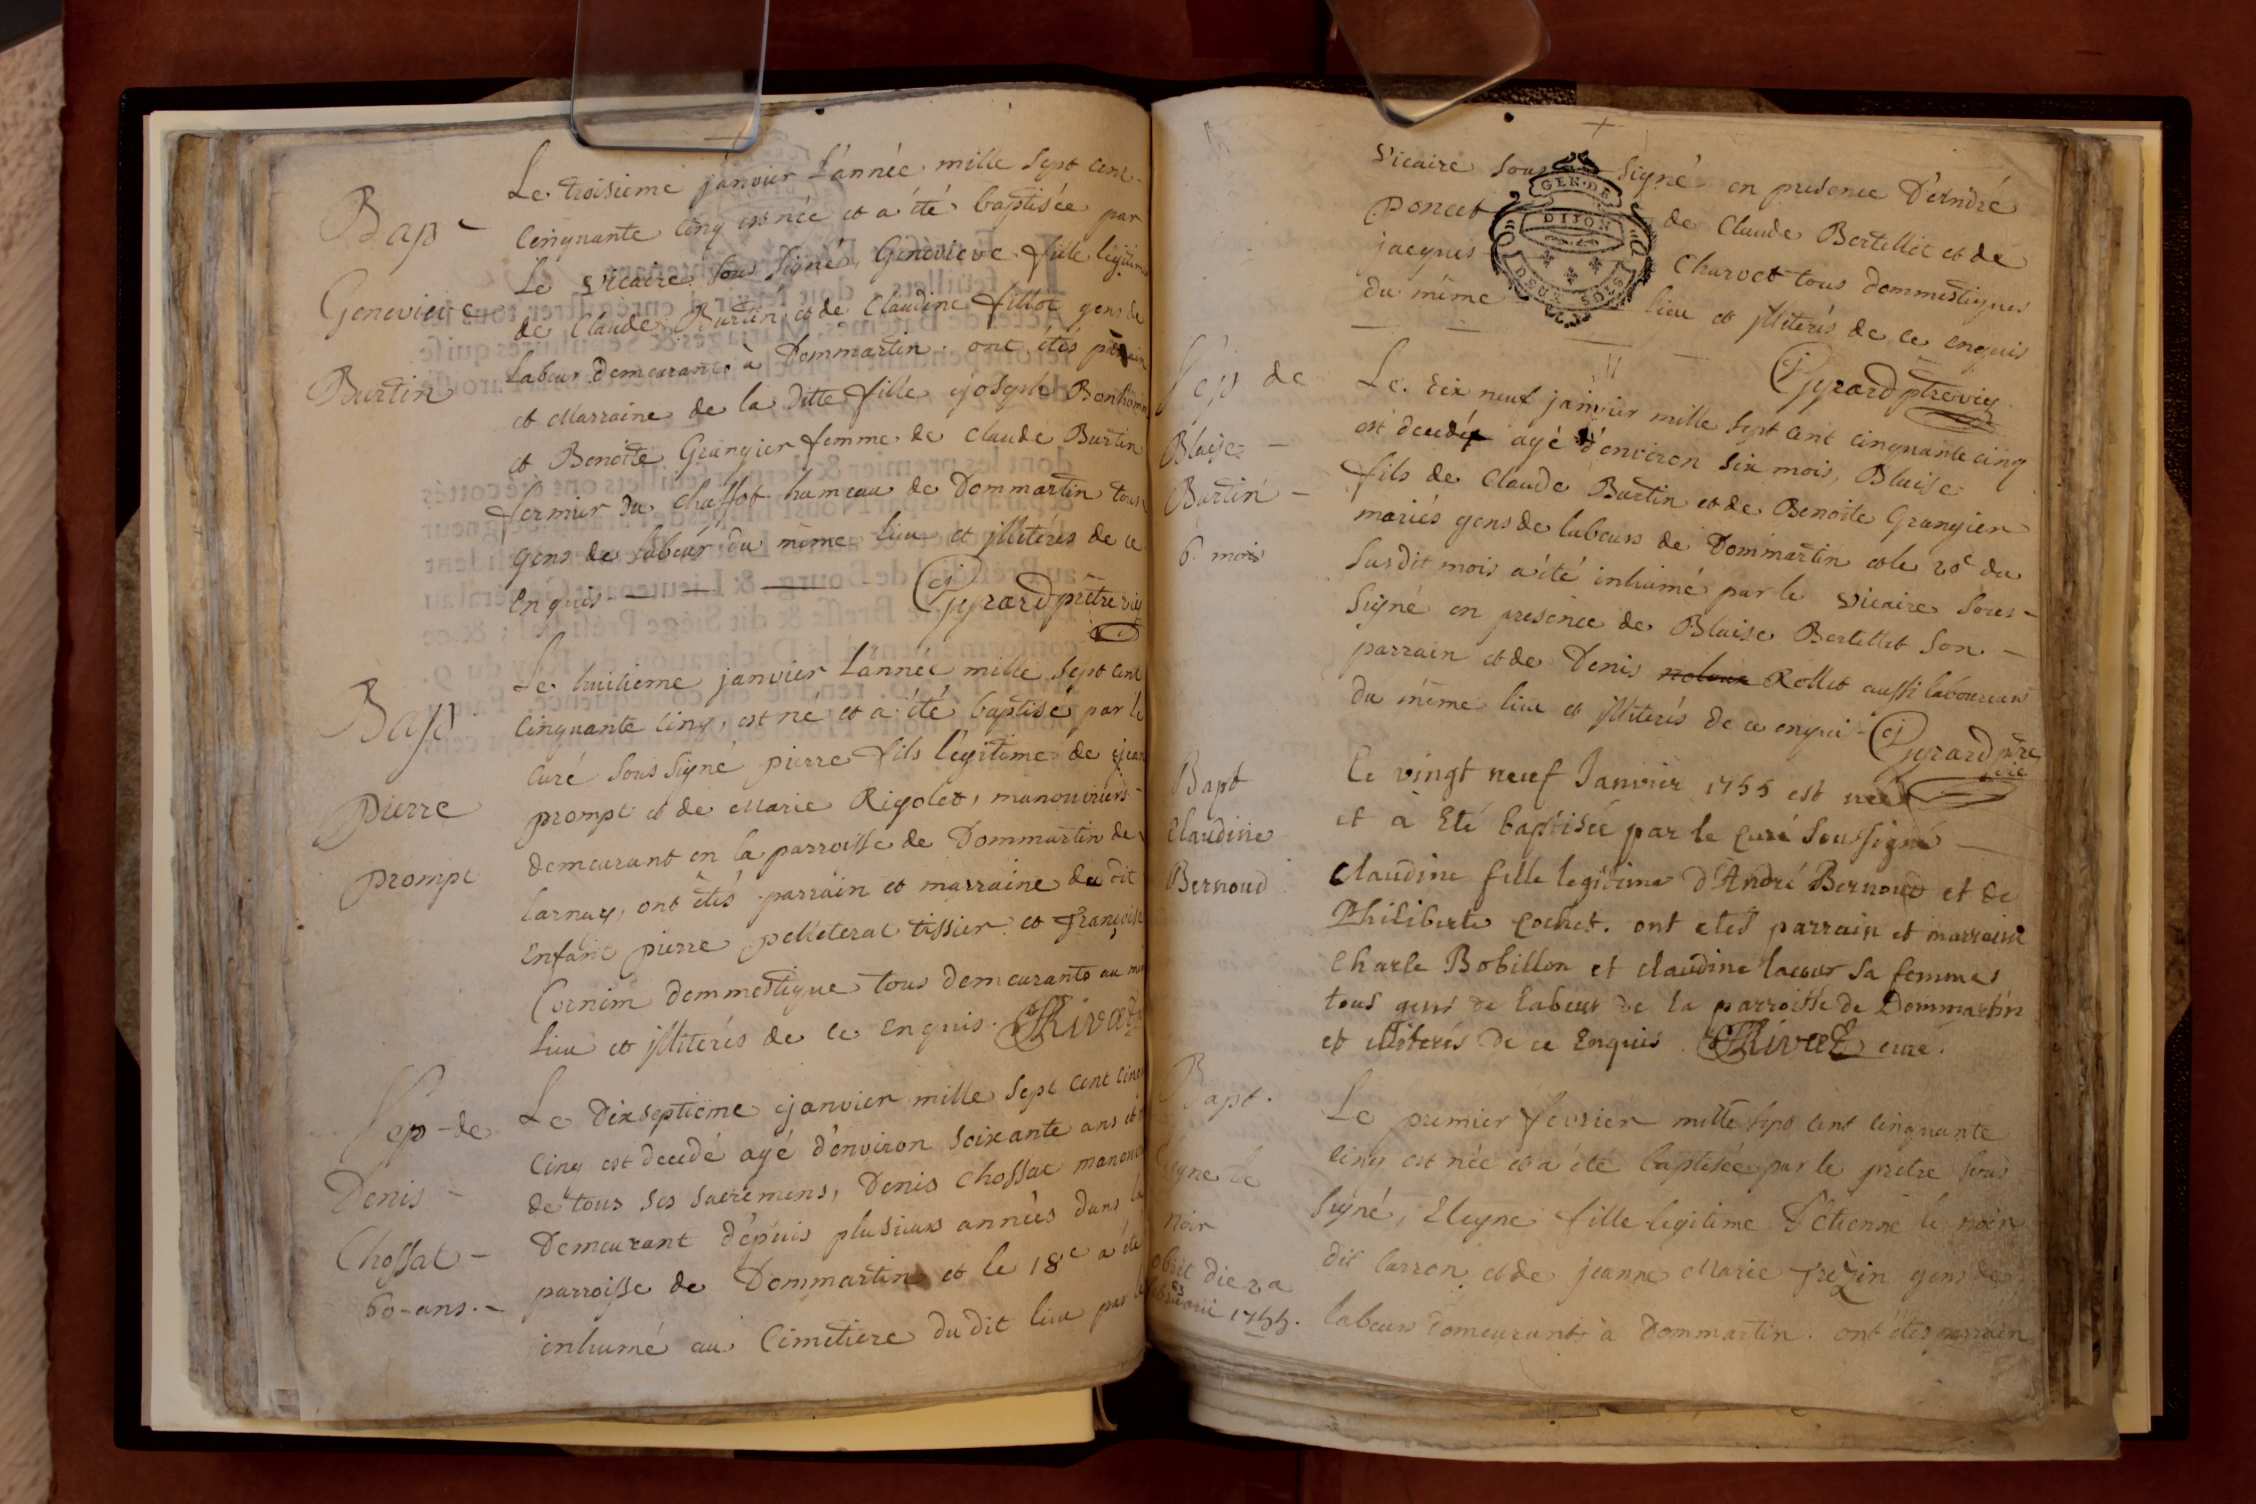 Bap
Genevieve
Burtin
Le troisieme janvier L'année mille sept cent
Cinquante cinq est née et a été baptisée par
Le Vicaire sous signé, Genevieve fille légitime
de Claude Burtin et de Claudine fillot gens de
Labeur demeurants à Dommartin. ont étés parrain
et Marraine de la ditte fille joseph Bonhomme
et Benoite Grangier femme de claude Burtin
fermier du chaffot hameau de Dommartin tous
gens de labeur du même lieu et jlliterés de ce
Enquis
Gyrard prêtre vic
Bap
pierre
prompt
Le huitieme janvier L'année mille sept cent
Cinquante cinq, est né et a été baptisé par le
curé sous signé pierre fils légitime de jean
prompt et de Marie Rigolet, manouvriers
demeurant en la parroisse de Dommartin de
Larnay, ont étés parrain et marraine du dit
Enfant pierre pelleterat tissier et françoise
Cornim dommestique tous demeurants au
lieu et jlliterés de ce Enquis. Rivat
Sep de
Denis
Chossat
60 ans.
Le Dixseptieme janvier mille sept cent cinq
Cinq est decedé agé d'environ soixante ans et
de tous ses sacremens, Denis chossat
Demeurant depuis plusieurs années dans la
parroisse de Dommartin et le 18e a été
inhumé au Cimetiere du dit lieu par le
Vicaire sous signé en presence D'André
Poncet de Claude Bertillet et de
jacques Charvet tous dommestiques
du même lieu et jlliterés de ce enquis
GEN. DE
DIJON
DEUX SOLS
Gyrard ptre vic
Sep de
Blaise
Burtin
6. mois
Le. Dix neuf janvier mille sept cent cinquante cinq
est decedé agé d'environ six mois, Blaise
fils de Claude Burtin et de Benoite Grangier
mariés gens de labeurs de Dommartin et le 20e du
susdit mois a été inhumé par le Vicaire sous-
signé en presence de Blaise Bertillet son
parrain et de Denis Rollet aussi laboureur
du même lieu et jlliterés de ce enquis
Gyrard ptre
vic
Bapt
Claudine
Bernoud
Le vingt neuf Janvier 1755 est née
et a Eté baptisée par le curé Soussigné
Claudine fille legitime d'André Bernoud et de
Philiberte Cochet. ont etés parrain et marraine
Charle Bobillon et claudine lacour sa femme
tous gens de labeur de la parroisse de Dommartin
et illiterés De ce Enquis. Rivat curé.
Bapt.
noir
obiit die 2a
februarii 1755.
Le premier fevrier mille sept cent cinquante
cinq est née et a été baptisée par le prêtre sous
signé, Eleyne fille legitime d'Etienne le noir
dit carron et de jeanne Marie frezin gens de
labeur demeurant à Dommartin. ont étés parrain